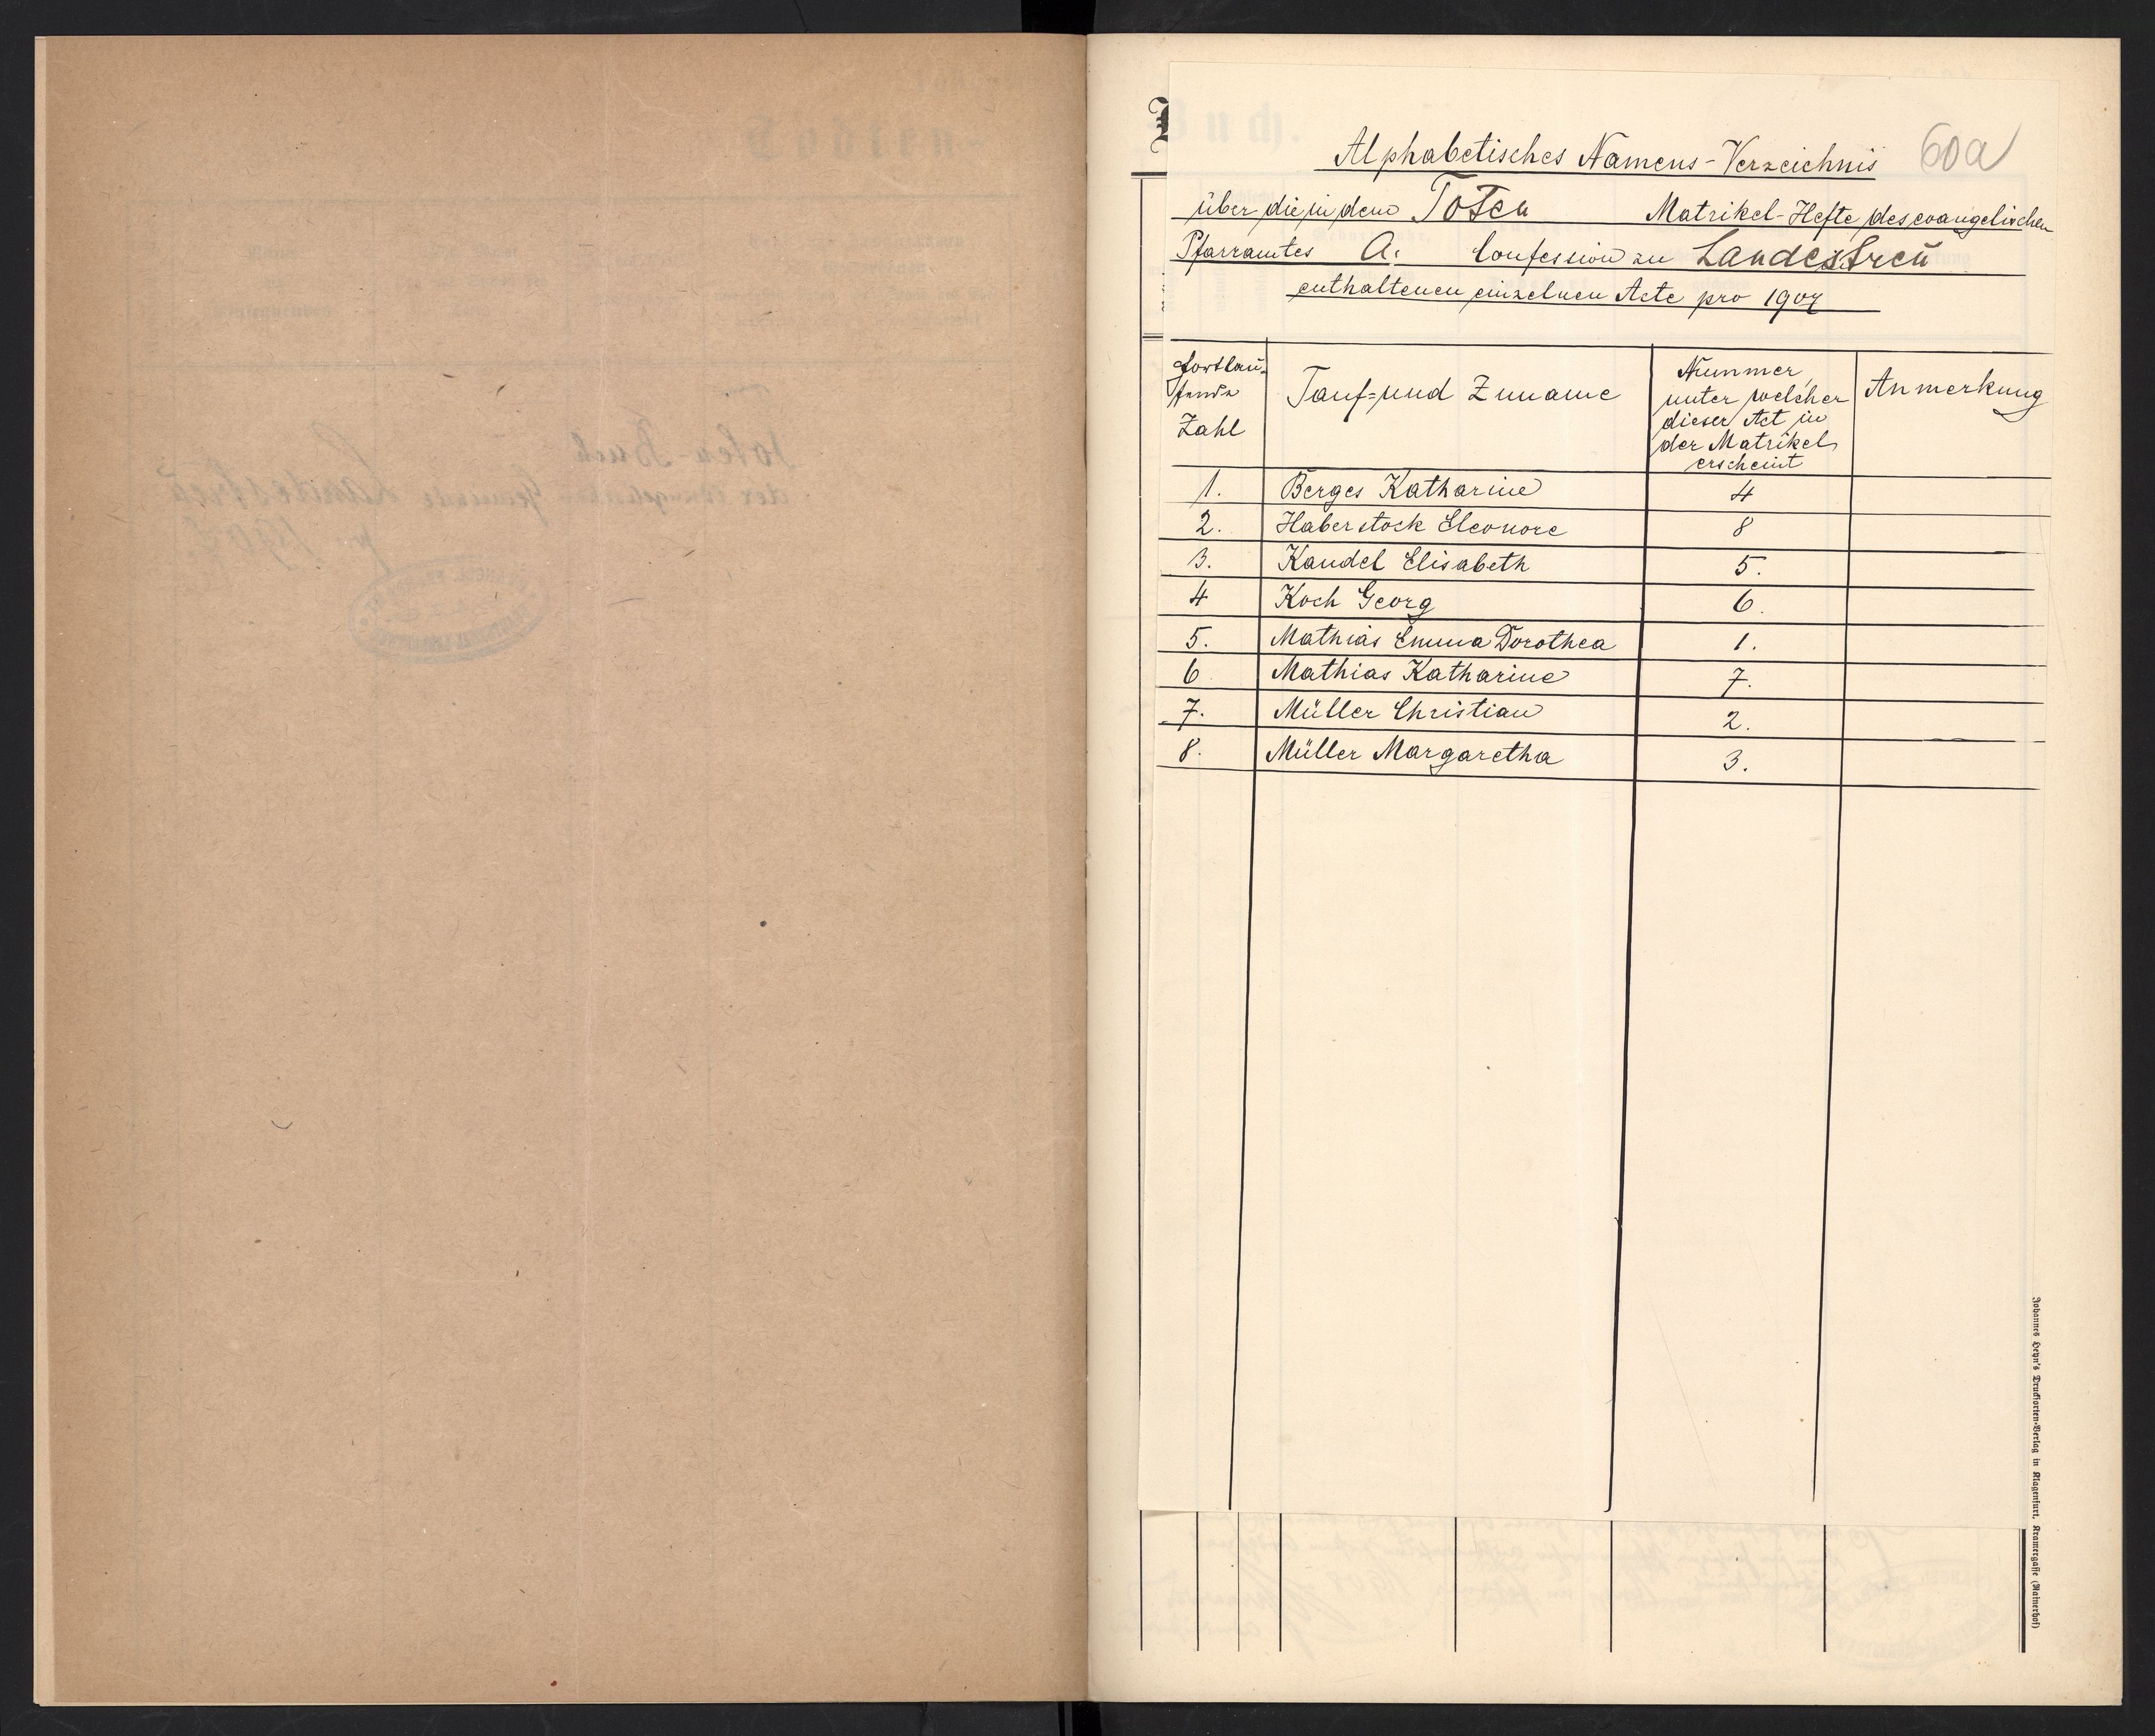 60a
Alphabetisches Namens-Verzeichnis
über die in dem Toten Matrikel-Hefte des evangelischen
Pfarramtes A. Confession zu Landestreu
enthaltenen einzelnen Acte pro 1907
Fortlau-
fende
Zahl
Tauf= und Zuname
Nummer,
unter welcher
dieser Act in
der Matrikel
erscheint
Anmerkung
1. Berges Katharine 4
2. Haberstock Eleonore 8
3. Kandel Elisabeth 5.
4 Koch Georg 6.
5. Mathias Emma Dorothea 1.
6 Mathias Katharine 7.
7. Müller Christian 2.
8. Müller Margaretha 3.
Johannes Heyn's Drucksorten-Verlag in Klagenfurt, Kramergasse (Rainerhof)